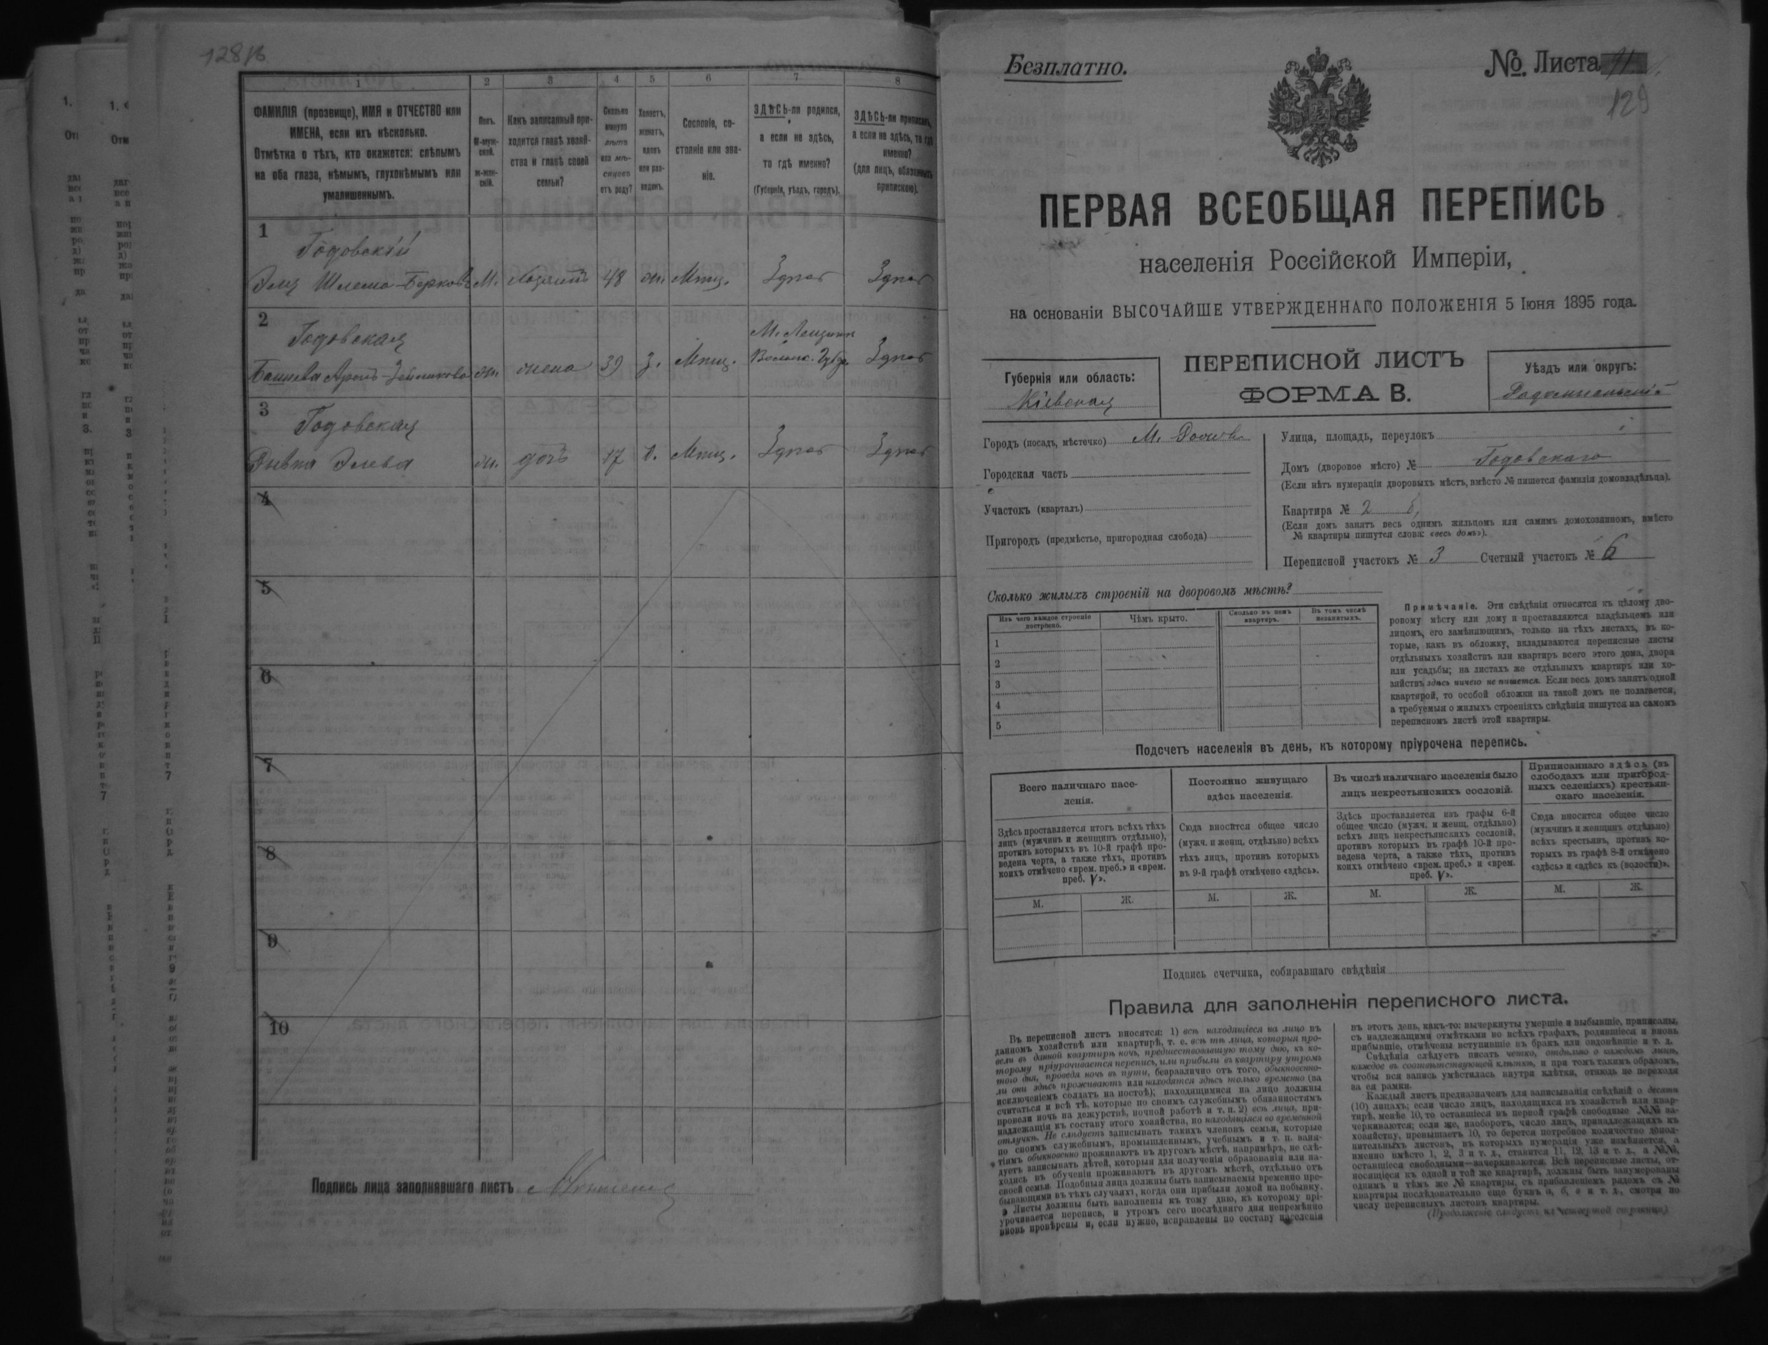 128 об
1 2 3 4 5 6 7 8
ФАМИЛІЯ (прозвище), ИМЯ и ОТЧЕСТВО или
ИМЕНА, если ихъ нѣсколько.
Отмѣтка о тѣхъ, кто окажется: слѣпымъ
на оба глаза, нѣмымъ, глухонѣмымъ или
умалишеннымъ.
Полъ.
М-муж-
ской.
Ж-жен-
скій.
Какъ записанный при-
ходится главѣ хозяй-
ства и главѣ своей
семьи?
Сколько
минуло
лѣтъ
или мѣ-
сяцевъ
отъ роду?
Холостъ,
женатъ,
вдовъ
или раз-
веденъ.
Сословіе, со-
стояніе или зва-
ніе.
ЗДѢСЬ-ли родился,
а если не здѣсь,
то гдѣ именно?
(Губернія, уѣздъ, городъ).
ЗДѢСЬ-ли приписанъ,
а если не здѣсь, то гдѣ
именно?
(для лицъ, обязанныхъ
припискою).
1
Годовскій
Шлема-Берковъ М. хозяинъ 48 ж. Мѣщ. Здѣсь Здѣсь
2
Годовская
ж. жена 39 з. Мѣщ. Здѣсь
3
Годовская
Ривка ж. дочь 17 д. Мѣщ. Здѣсь Здѣсь
4
5
6
7
8
9
10
Подпись лица заполнявшаго листъ
Безплатно.
№ Листа
129
ПЕРВАЯ ВСЕОБЩАЯ ПЕРЕПИСЬ
населенія Россійской Имперіи,
на основаніи ВЫСОЧАЙШЕ УТВЕРЖДЕННАГО ПОЛОЖЕНІЯ 5 Іюня 1895 года.
Губернія или область:
Кіевская
ПЕРЕПИСНОЙ ЛИСТЪ
ФОРМА В.
Уѣздъ или округъ:
Радомысльскій
Городъ (посадъ, мѣстечко) М.
Городская часть
Участокъ (кварталъ)
Пригородъ (предмѣстье, пригородная слобода)
Улица, площадь, переулокъ
Домъ (дворовое мѣсто) № Годовскаго
(Если нѣтъ нумераціи дворовыхъ мѣстъ, вмѣсто № пишется фамилія домовладѣльца).
Квартира № 2 б,
(Если домъ занятъ весь однимъ жильцомъ или самимъ домохозяиномъ, вмѣсто
№ квартиры пишутся слова: «весь домъ»).
Переписной участокъ № 3 Счетный участокъ № 6
Сколько жилыхъ строеній на дворовомъ мѣстѣ?
Изъ чего каждое строеніе
построено.
Чѣмъ крыто.
Сколько въ немъ
квартиръ.
Въ томъ числѣ
незанятыхъ.
1
2
3
4
5
Примѣчаніе. Эти свѣдѣнія относятся къ цѣлому дво-
ровому мѣсту или дому и проставляются владѣльцемъ или
лицомъ, его замѣняющимъ, только на тѣхъ листахъ, въ ко-
торые, какъ въ обложку, вкладываются переписные листы
отдѣльныхъ хозяйствъ или квартиръ всего этого дома, двора
или усадьбы; на листахъ же отдѣльныхъ квартиръ или хо-
зяйствъ здѣсь ничего не пишется. Если весь домъ занятъ одной
квартирой, то особой обложки на такой домъ не полагается,
а требуемыя о жилыхъ строеніяхъ свѣдѣнія пишутся на самомъ
переписномъ листѣ этой квартиры.
Подсчетъ населенія въ день, къ которому пріурочена перепись.
Всего наличнаго насе-
ленія.
Постоянно живущаго
здѣсь населенія.
Въ числѣ наличнаго населенія было
лицъ некрестьянскихъ сословій.
Приписаннаго здѣсь (въ
слободахъ или пригород-
ныхъ селеніяхъ) крестьян-
скаго населенія.
Здѣсь проставляется итогъ всѣхъ тѣхъ
лицъ (мужчинъ и женщинъ отдѣльно),
противъ которыхъ въ 10-й графѣ про-
ведена черта, а также тѣхъ, противъ
коихъ отмѣчено «врем. преб.» и «врем.
преб. V».
Сюда вносится общее число
(мужч. и женщ. отдѣльно) всѣхъ
тѣхъ лицъ, противъ которыхъ
въ 9-й графѣ отмѣчено «здѣсь».
Здѣсь проставляется изъ графы 6-й
общее число (мужч. и женщ. отдѣльно)
всѣхъ лицъ некрестьянскихъ сословій,
противъ которыхъ въ графѣ 10-й про-
ведена черта, а также тѣхъ, противъ
коихъ отмѣчено «врем. преб.» и «врем.
преб. V».
Сюда вносится общее число
(мужчинъ и женщинъ отдѣльно)
всѣхъ крестьянъ, противъ ко-
торыхъ въ графѣ 8-й отмѣчено
«здѣсь» и «здѣсь къ (волости)».
М. Ж. М. Ж. М. Ж. М. Ж.
Подпись счетчика, собиравшаго свѣдѣнія
Правила для заполненія переписного листа.
Въ переписной листъ вносятся: 1) всѣ находящіеся на лицо въ
данномъ хозяйствѣ или квартирѣ, т. е. всѣ тѣ лица, которыя про-
вели въ данной квартирѣ ночь, предшествовавшую тому дню, къ ко-
торому пріурочивается перепись, или прибыли въ квартиру утромъ
того дня, проведя ночь въ пути, безразлично отъ того, обыкновенно-
ли они здѣсь проживаютъ или находятся здѣсь только временно (за
исключеніемъ солдатъ на постоѣ); находящимися на лицо должны
считаться и всѣ тѣ, которые по своимъ служебнымъ обязанностямъ
провели ночь на дежурствѣ, ночной работѣ и т. п. 2) всѣ лица, при-
надлежащія къ составу этого хозяйства, но находящіяся во временной
отлучкѣ. Не слѣдуетъ записывать такихъ членовъ семьи, которые
по своимъ служебнымъ, промышленнымъ, учебнымъ и т. п. заня-
тіямъ обыкновенно проживаютъ въ другомъ мѣстѣ, напримѣръ, не слѣ-
дуетъ записывать дѣтей, которыя для полученія образованія или на-
ходясь въ обученіи проживаютъ въ другомъ мѣстѣ, отдѣльно отъ
своей семьи. Подобныя лица должны быть записываемы временно про-
бывающими въ тѣхъ случаяхъ, когда они прибыли домой на побывку.
Листы должны быть заполнены къ тому дню, къ которому прі-
урочивается перепись, и утромъ сего послѣдняго дня непремѣнно
вновь провѣрены и, если нужно, исправлены по составу населенія
въ этотъ день, какъ-то: вычеркнуты умершіе и выбывшіе, приписаны,
съ надлежащими отмѣтками во всѣхъ графахъ, родившіеся и вновь
прибывшіе, отмѣчены вступившіе въ бракъ или овдовѣвшіе и т. д.
Свѣдѣнія слѣдуетъ писать четко, отдѣльно о каждомъ лицѣ,
каждое въ соотвѣтствующей клѣткѣ, и при томъ такимъ образомъ,
чтобы вся запись умѣстилась внутри клѣтки, отнюдь не переходя
за ея рамки.
Каждый листъ предназначенъ для записыванія свѣдѣній о десяти
(10) лицахъ; если число лицъ, находящихся въ хозяйствѣ или квар-
тирѣ, менѣе 10, то оставшіеся въ первой графѣ свободные №№ за-
черкиваются; если же, наоборотъ, число лицъ, принадлежащихъ къ
хозяйству, превышаетъ 10, то берется потребное количество допол-
нительныхъ листовъ, въ которыхъ нумерація уже измѣняется, а
именно вмѣсто 1, 2, 3 и т. д., ставится 11, 12, 13 и т. д., а №№,
оставшіеся свободными—зачеркиваются. Всѣ переписные листы, от-
носящіеся къ одной и той же квартирѣ, должны быть занумерованы
однимъ и тѣмъ же № квартиры, съ прибавленіемъ рядомъ съ №
квартиры послѣдовательно еще буквъ а, б, в и т. д., смотря по
числу переписныхъ листовъ квартиры.
(Продолженіе слѣдуетъ на четвертой страницѣ)